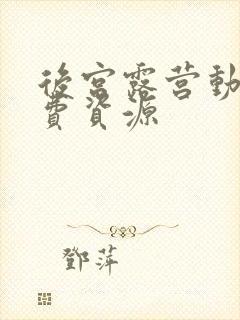 後宮露营動
費資源
鄧萍